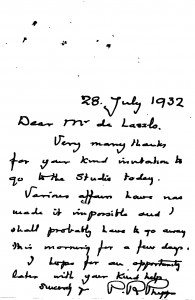 28. July 1932
Dear Mr de Laszlo.
Very many thanks
for your kind invitation to
go to the Studio today.
Various affairs have
made it impossible and I
shall probably have to go away
this morning for a few days.
I hope for an opportunity
later with your kind help
Sincerely